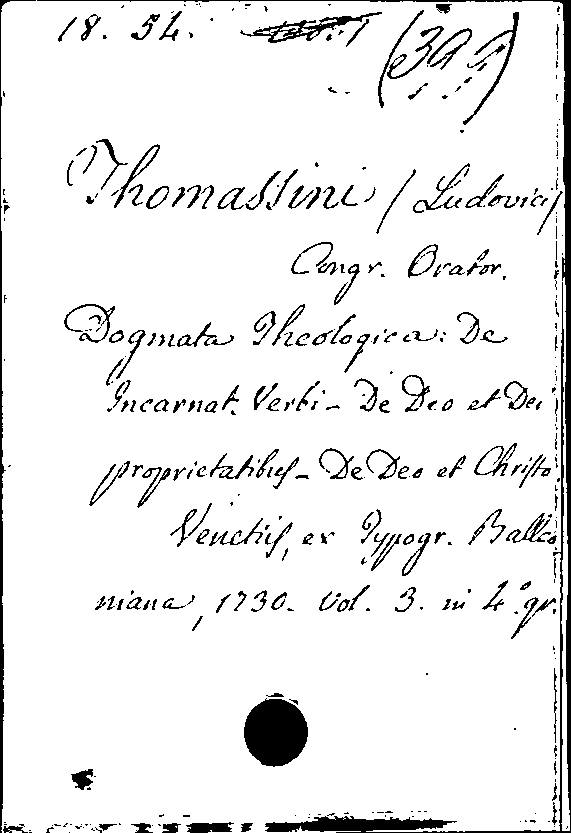 18. 54.
Thomassini / Ludovici /
Congr. Orator.
Dogmata Theologica: De
Incarnat. Verbi - De Deo et Dei
proprietatibus - De Deo et Christo
Venetiis, ex Typogr. Balleo
niana, 1730. Vol. 3. in 4.º gr.